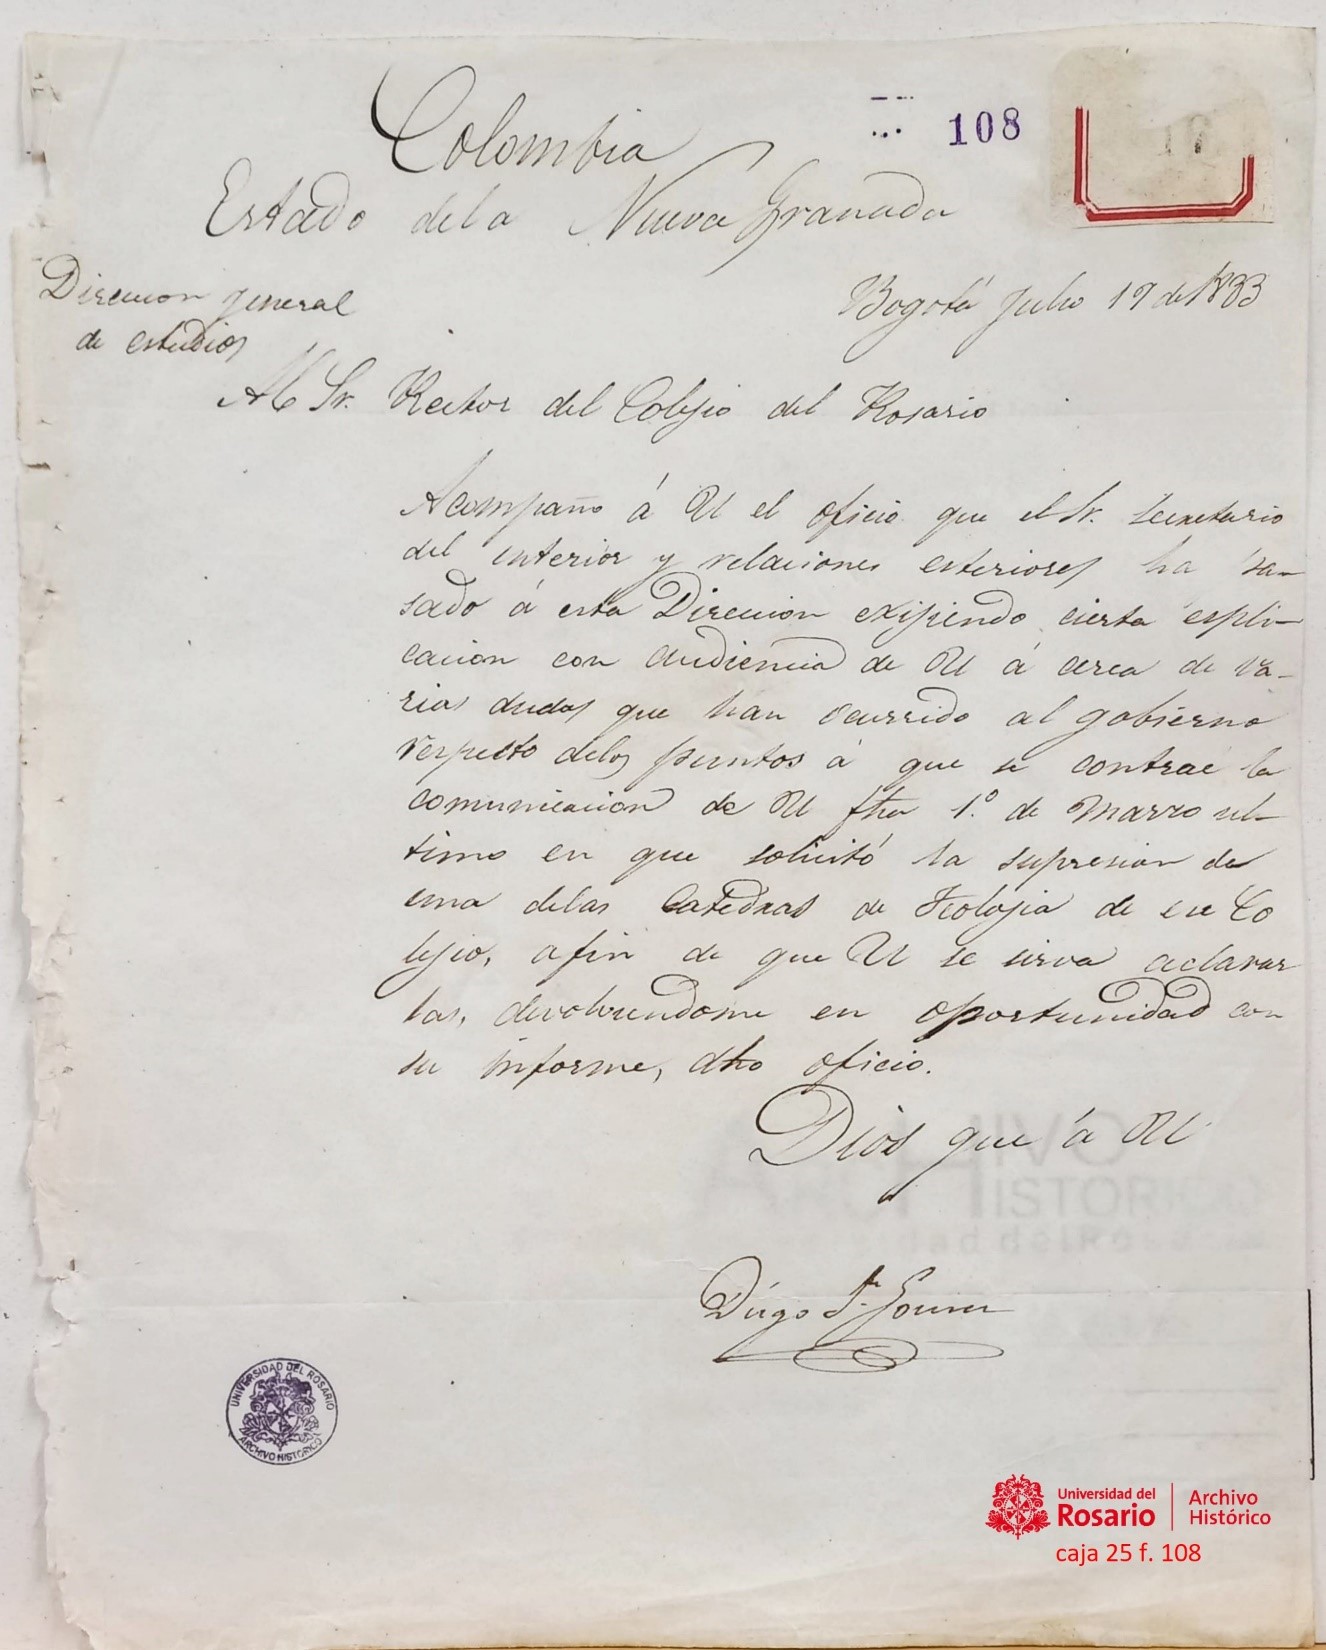 108
17
Colombia
Estado dela Nueva Granada
Direccion general
de estudios
Bogotá Julio 17 de 1833
Al Sr. Rector del Colejio del Rosario
Acompaño á U el oficio que el Sr. Secretario
del interior y relaciones esteriores ha pa-
sado á esta Direccion exijiendo cierta espli-
cacion con audiencia de U á cerca de va-
rias dudas que han ocurrido al gobierno
respecto delos puntos á que se contrae la
comunicacion de U fha 1.º de Marzo ul-
timo en que solicitó la supresion de
una delas Catedras de Teolojia de ese Co
lejio, afin de que U se sirva aclarar
las, devolviendome en oportunidad con
su informe, dho oficio.
Dios gue á U
Diego F. Gomez
UNIVERSIDAD DEL ROSARIO
ARCHIVO HISTORICO
ARCHIVO
HISTORICO
Universidad del Rosario
Universidad del
Rosario
Archivo
Histórico
caja 25 f. 108